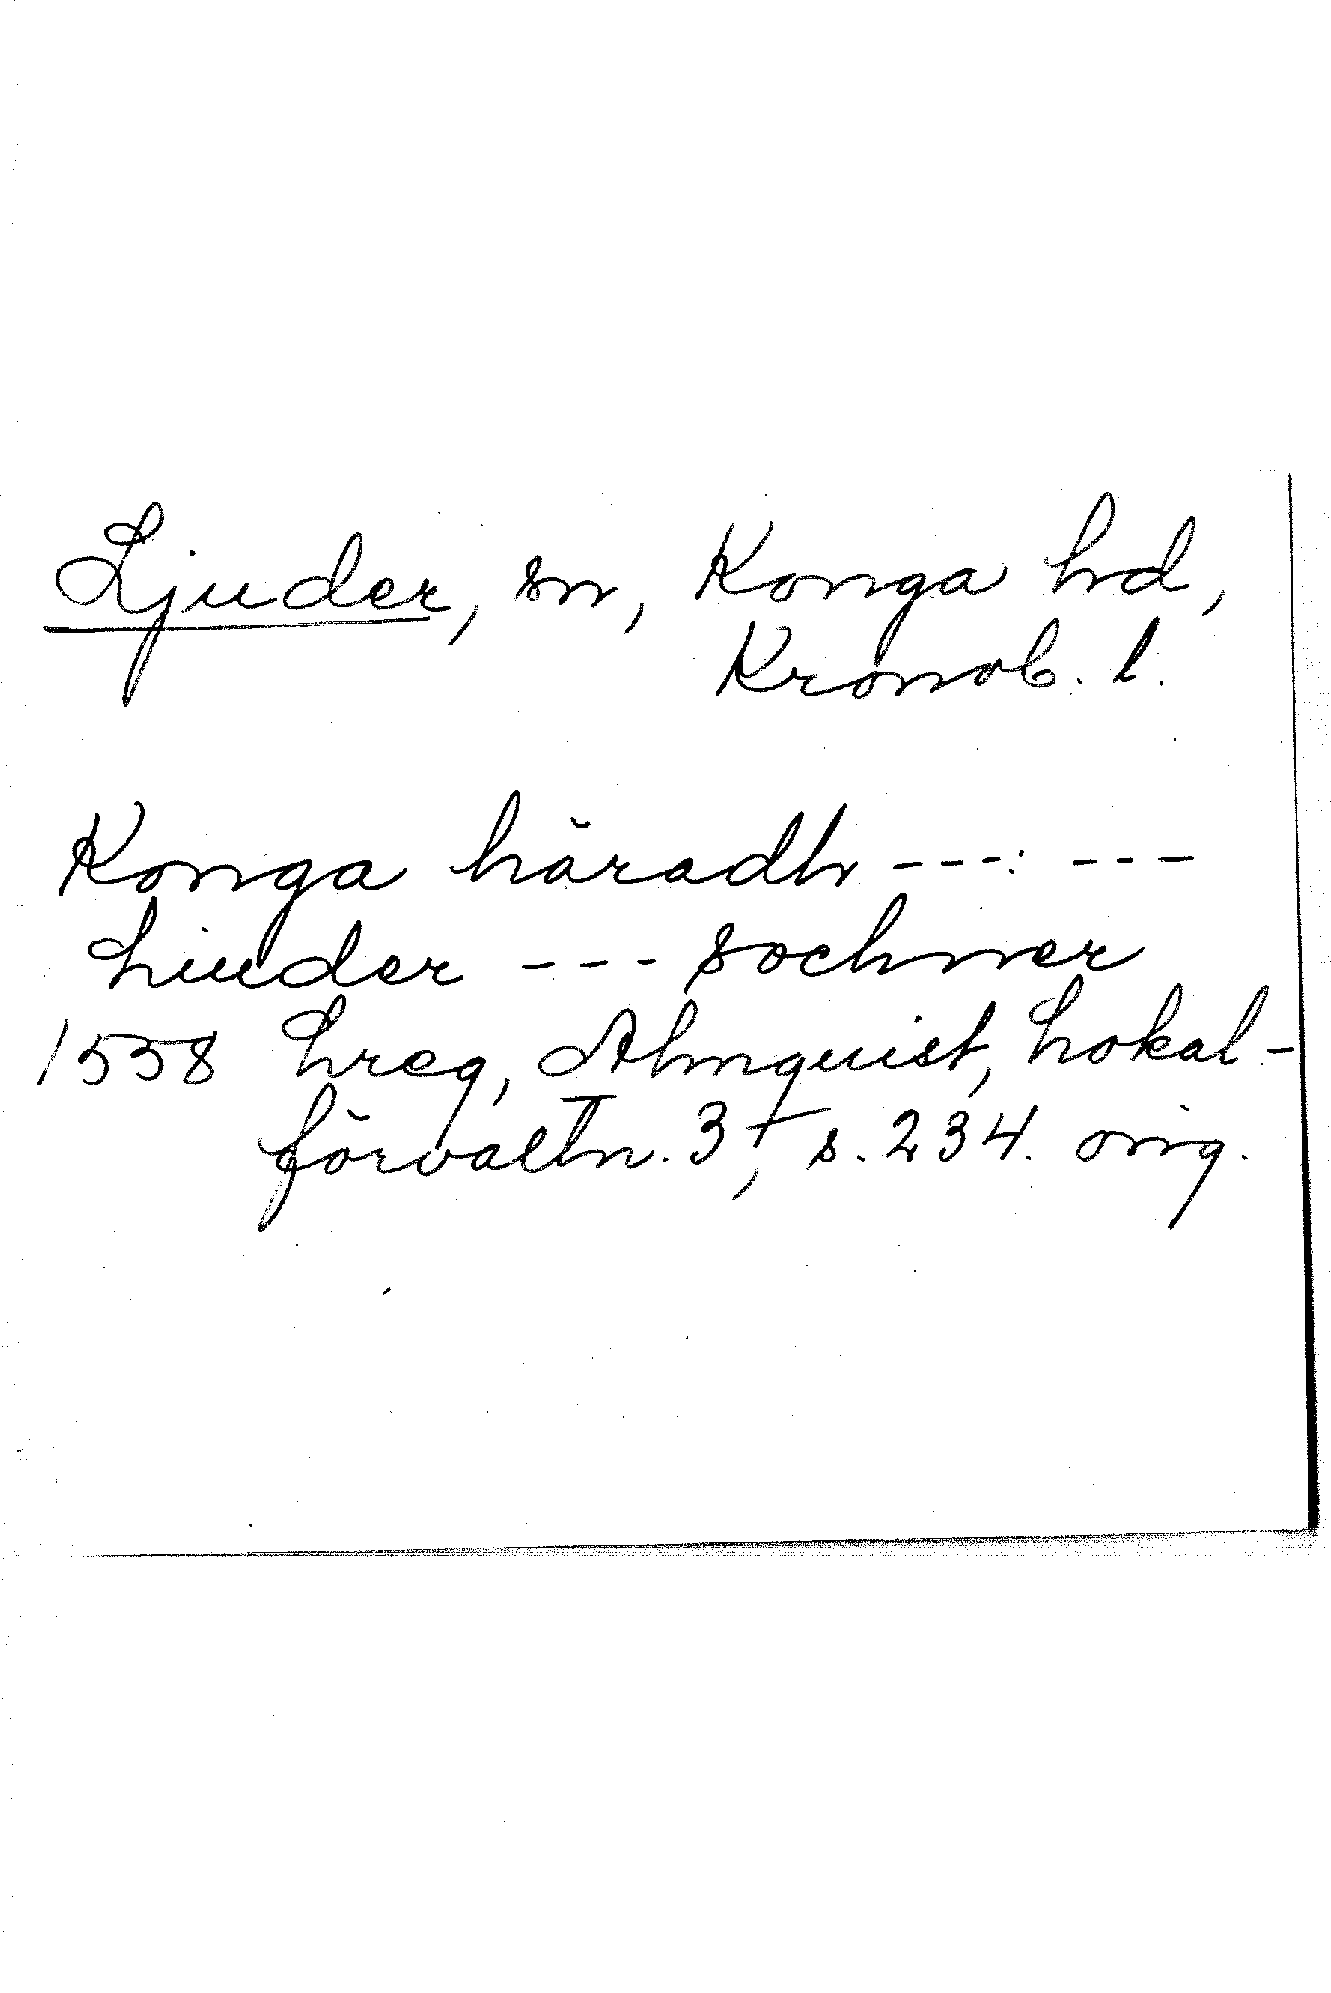 Ljuder, sn, Konga hd,
Kronob. l.
Konga häradh ---: ---
Liuder --- sochner
1558 Lreg, Almquist, Lokal-
förvaltn. 3†, s. 234. orig.